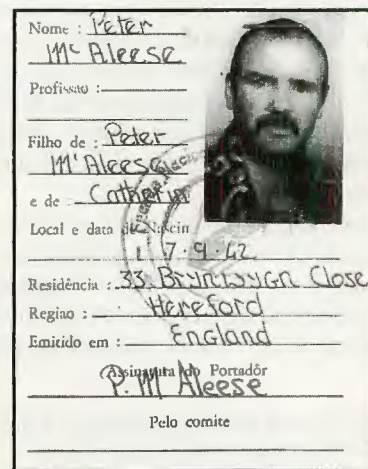 Nome : Peter
Mc Aleese
Profissão :
Filho de : Peter
Mc Aleese
e de : Catherin
Local e data de Nascim
7.9.42
Residência : 33. Close
Regiao : Hereford
Emitido em : England
Assinatura do Portadôr
P. Mc Aleese
Pelo comite